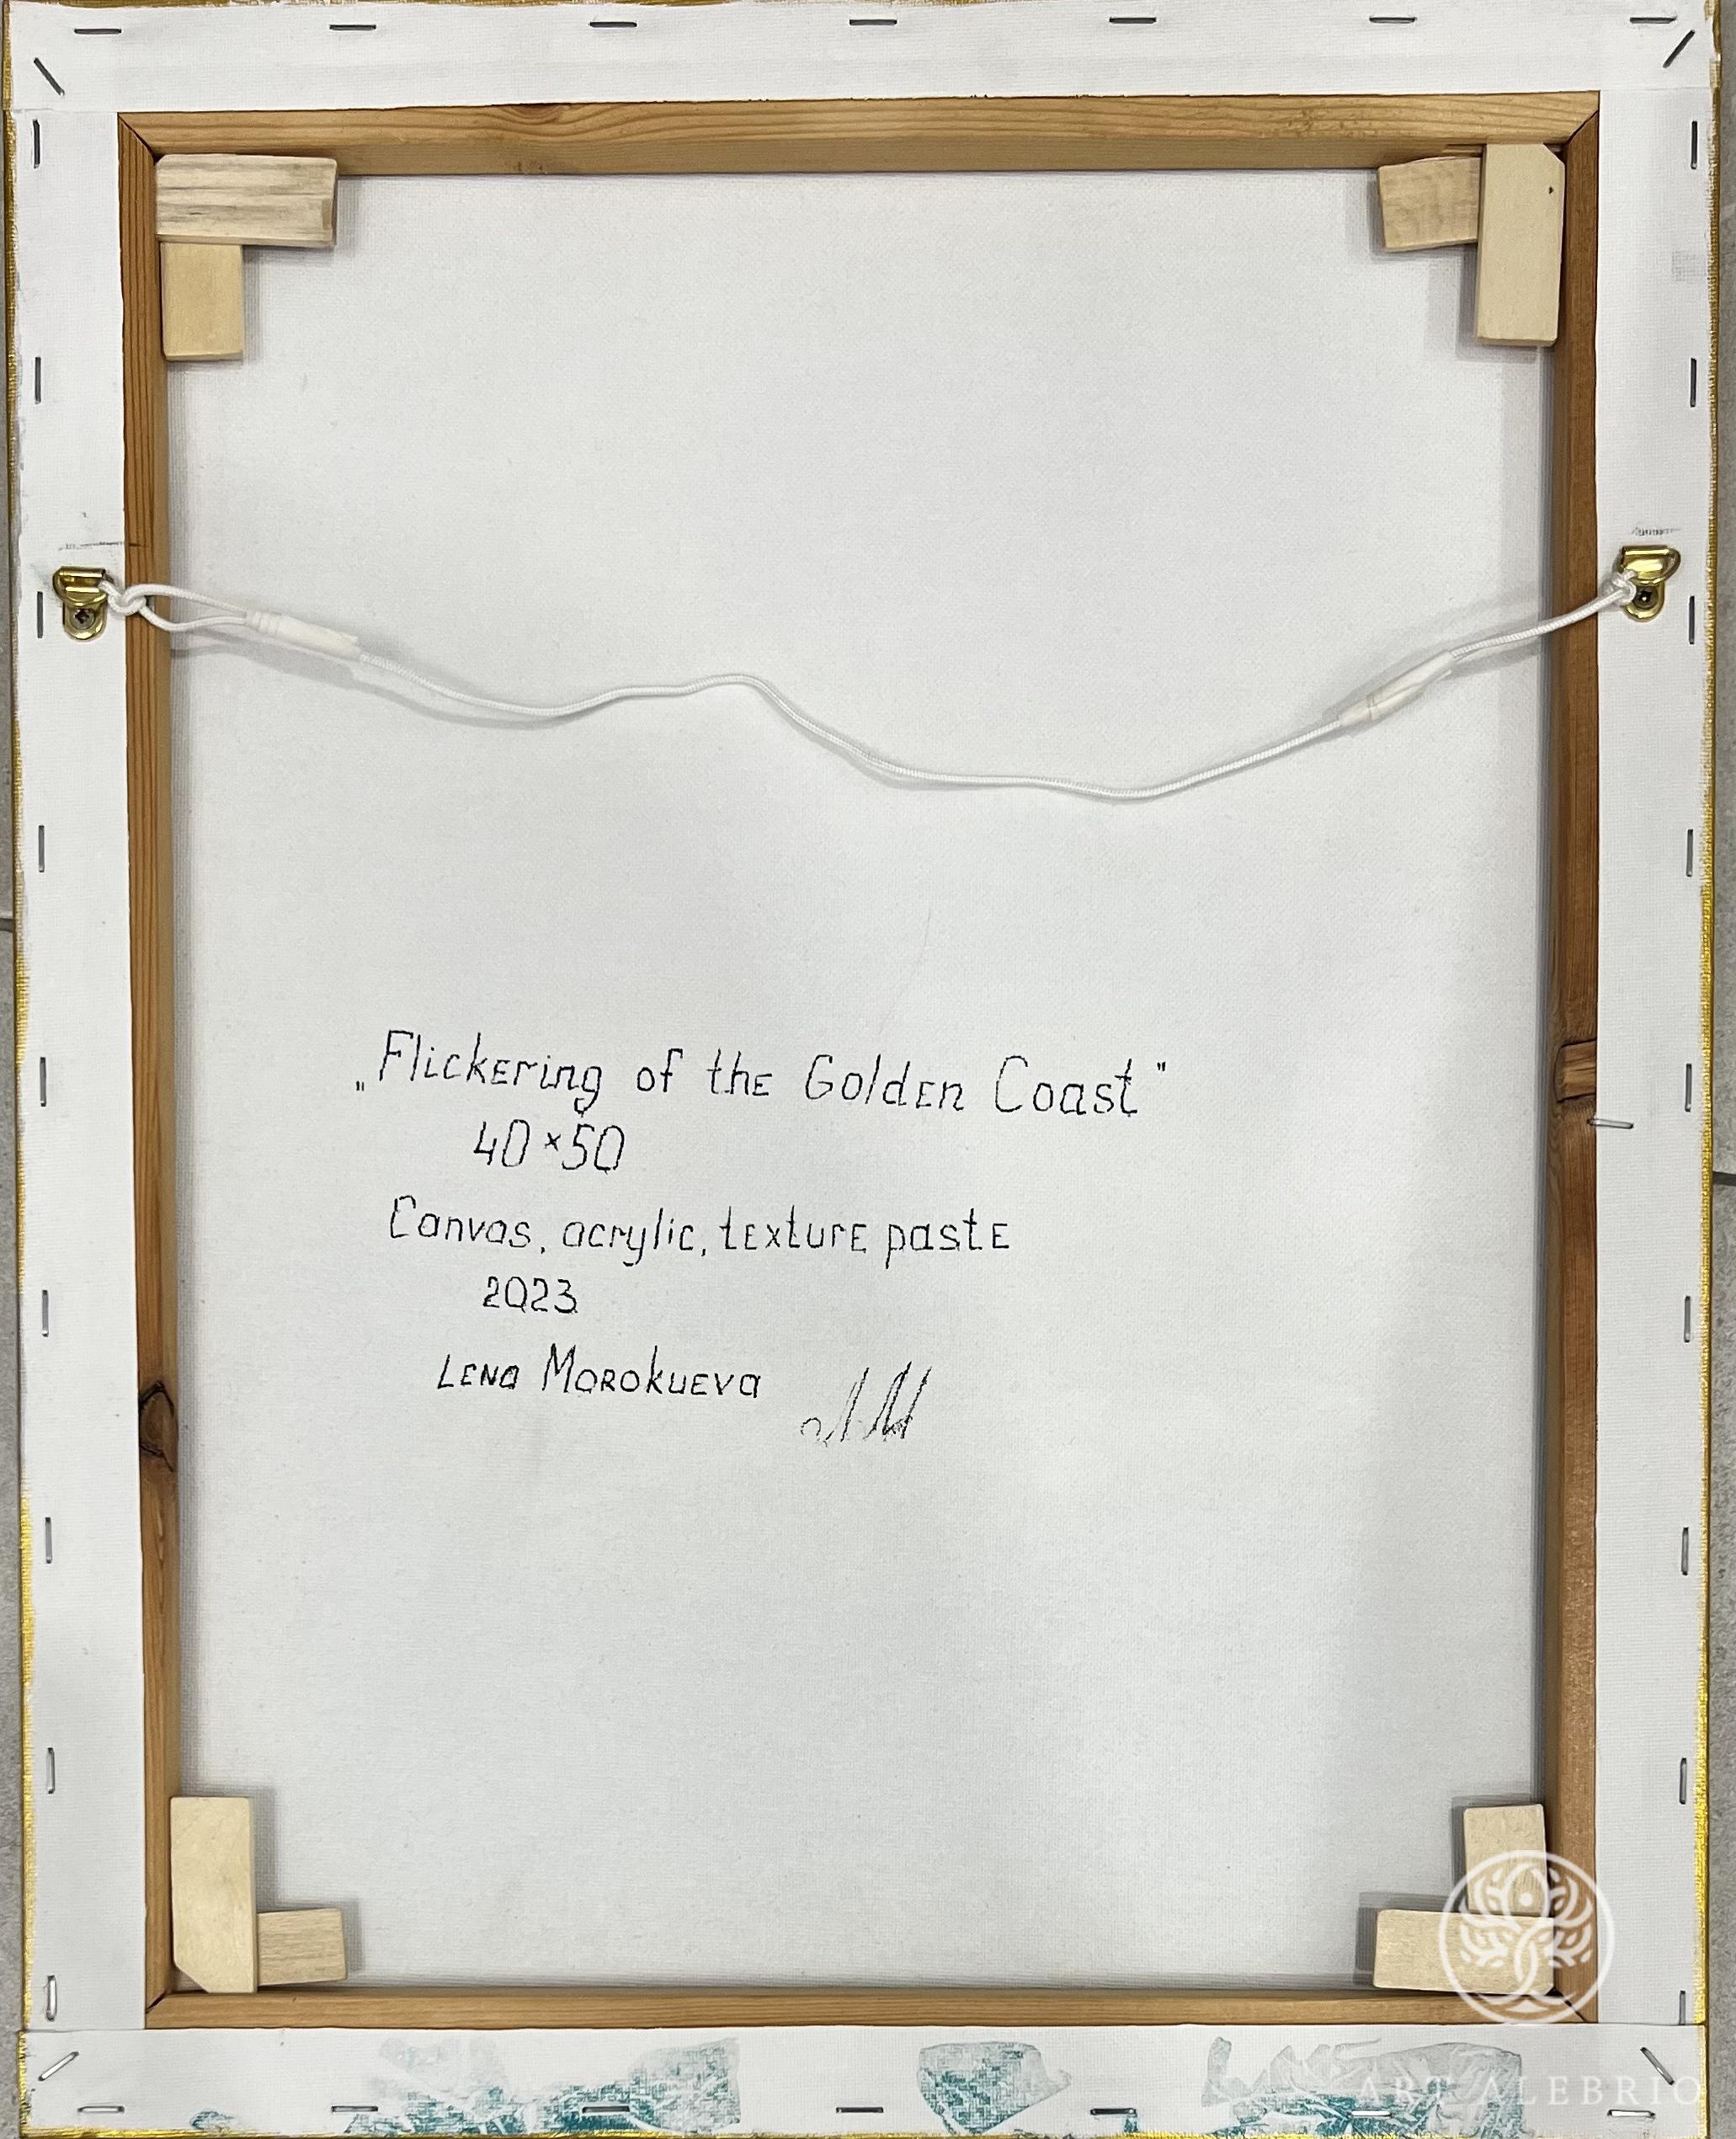 „Flickering of the Golden Coast"
40×50
Canvas, acrylic, texture paste
2023
Lena Morokueva
ART ALEBRIO